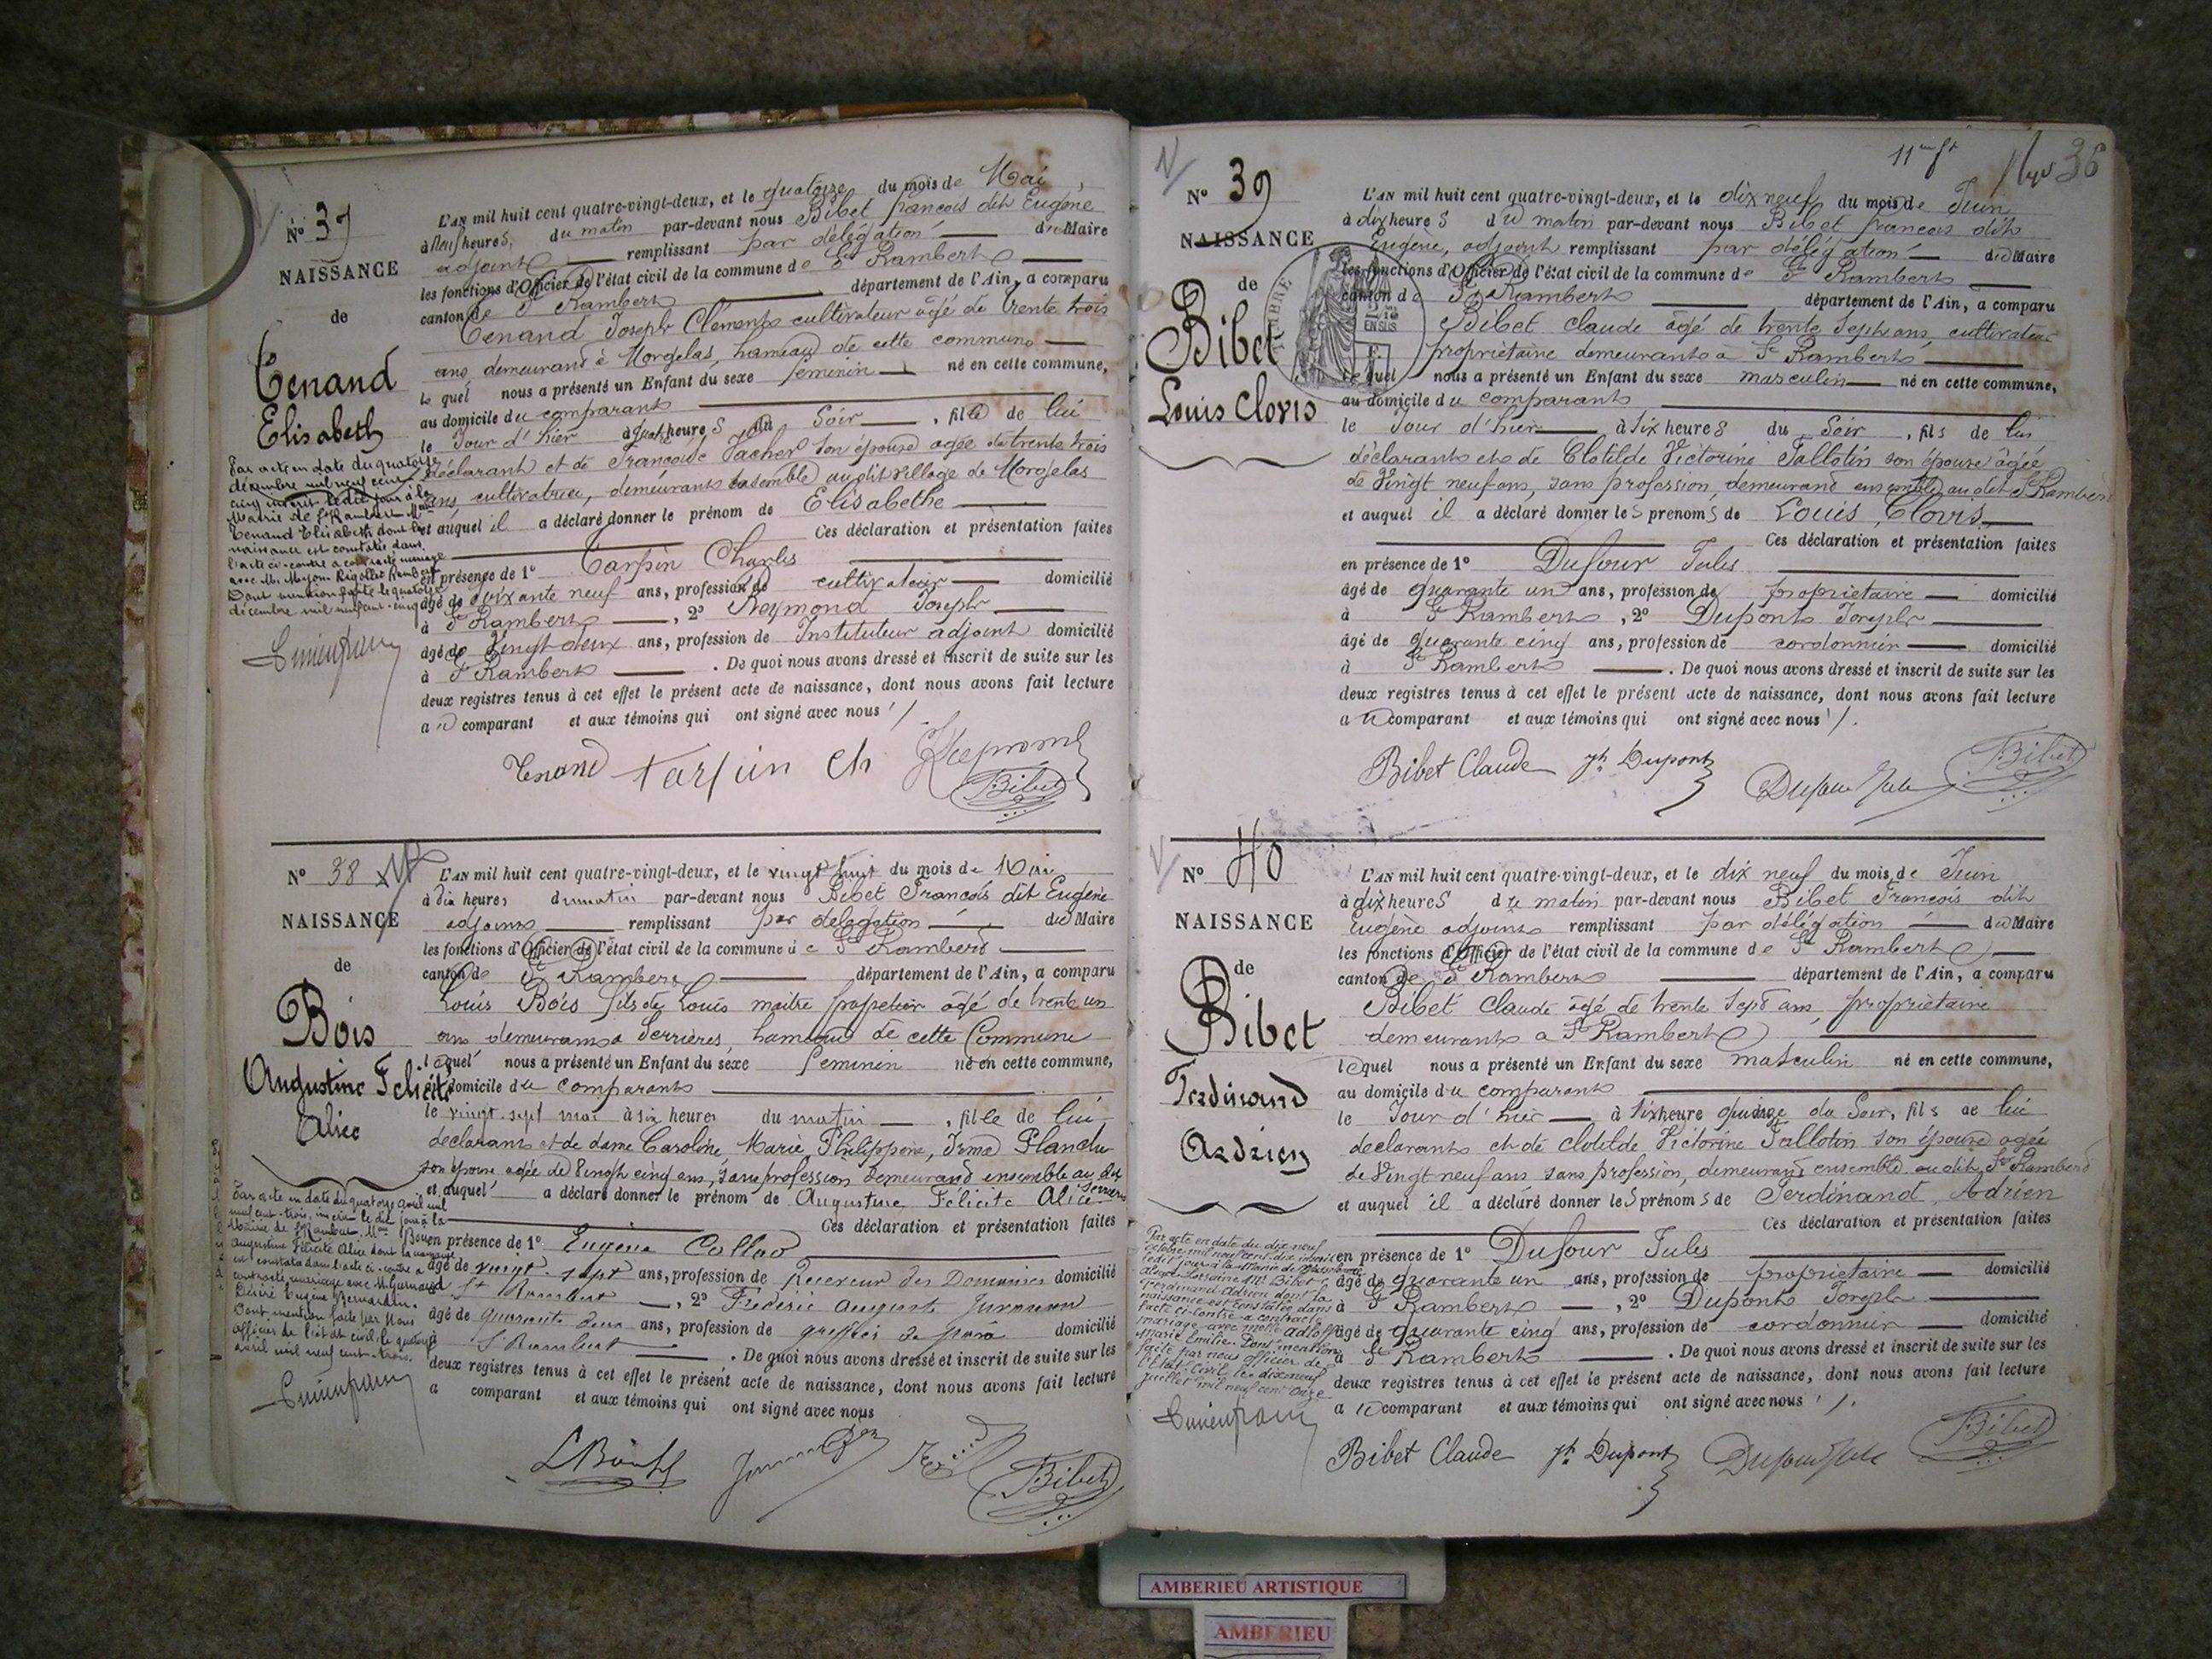 N° 37
NAISSANCE
de
Tenand
Elisabeth
Par acte en date du quatorze
décembre mil neuf cent
cinq inscrit le dit jour à la
Mairie de St Rambert Mlle
Tenand Elisabeth dont la
naissance est constatée dans
l'acte ci-contre a contracté mariage
avec Mr
Dont mention faite le quatorze
décembre mil neuf cent cinq
L'AN mil huit cent quatre-vingt-deux, et le quatorze du mois de Mai
à neuf heures, du matin par-devant nous Bibet françois dit Eugène
adjoint remplissant par délégation du Maire
les fonctions d'Officier de l'état civil de la commune de St Rambert
canton de St Rambert département de l'Ain, a comparu
Tenand Joseph Clément cultivateur âgé de trente trois
ans demeurant à Morgelas, hameau de cette commune
le quel nous a présenté un Enfant du sexe féminin né en cette commune,
au domicile du comparant
le Jour d'hier à quatre heures du Soir, fille de lui
déclarant et de Françoise Vacher son épouse agée de trente trois
ans, cultivatrice, demeurant ensemble au dit village de Morgelas
et auquel il a déclaré donner le prénom de Elisabethe
Ces déclaration et présentation faites
en présence de 1° Tarpin Charles
âgé de soixante neuf ans, profession de cultivateur domicilié
à St Rambert, 2° Reymond Joseph
âgé de Vingt deux ans, profession de Instituteur adjoint domicilié
à St Rambert. De quoi nous avons dressé et inscrit de suite sur les
deux registres tenus à cet effet le présent acte de naissance, dont nous avons fait lecture
au comparant et aux témoins qui ont signé avec nous
Tenand Tarpin Ch Reymond
Bibet
N° 38
NAISSANCE
de
Bois
Augustine Félicité
Alice
Par acte en date du quatorze avril mil
neuf cent-trois, inscrit le dit jour à la
Mairie de St Rambert, Mlle Bois
Augustine Félicité Alice dont la naissance
est constatée dans l'acte ci-contre a
contracté mariage avec M.
Désiré Eugène Bernardin.
Dont mention faite par Nous
officier de l'état civil le quatorze
avril mil neuf cent-trois.
L'AN mil huit cent quatre-vingt-deux, et le vingt huit du mois de Mai
à dix heures du matin par-devant nous Bibet François dit Eugène
adjoint remplissant par délégation du Maire
les fonctions d'Officier de l'état civil de la commune de St Rambert
canton de St Rambert département de l'Ain, a comparu
Louis Bois fils de Louis maître âgé de trente un
ans demeurant à Serrières, hameau de cette Commune
lequel nous a présenté un Enfant du sexe féminin né en cette commune,
au domicile du comparant
le vingt-sept mai à six heures du matin, fille de lui
déclarant et de dame Caroline, Marie Philippine, Irma Planche
son épouse agée de Vingt cinq ans, sans profession demeurant ensemble au dit Serrières
et auquel a déclaré donner le prénom de Augustine Félicité Alice
Ces déclaration et présentation faites
en présence de 1° Eugène
âgé de vingt-sept ans, profession de Receveur des Domaines domicilié
St Rambert, 2° Frédéric Auguste
âgé de quarante deux ans, profession de greffier de paix domicilié
à St Rambert. De quoi nous avons dressé et inscrit de suite sur les
deux registres tenus à cet effet le présent acte de naissance, dont nous avons fait lecture
a comparant et aux témoins qui ont signé avec nous
Bibet
11 36
N° 39
NAISSANCE
de
Bibet
Louis Clovis
TIMBRE
EN SUS
L'AN mil huit cent quatre-vingt-deux, et le dix neuf du mois de Juin
à dix heures du matin par-devant nous Bibet françois dit
Eugène, adjoint remplissant par délégation du Maire
les fonctions d'Officier de l'état civil de la commune de St Rambert
canton de St Rambert département de l'Ain, a comparu
Bibet claude âgé de trente Sept ans, cultivateur
propriétaire demeurant à St Rambert
le quel nous a présenté un Enfant du sexe masculin né en cette commune,
au domicile du comparant
le Jour d'hier à six heures du Soir, fils de lui
déclarant et de Clotilde Victorine Tallotin son épouse âgée
de Vingt neuf ans, sans profession, demeurant ensemble au dit St Rambert
et auquel il a déclaré donner les prénoms de Louis, Clovis
Ces déclaration et présentation faites
en présence de 1° Dufour Jules
âgé de quarante un ans, profession de propriétaire domicilié
à St Rambert, 2° Dupont Joseph
âgé de quarante cinq ans, profession de cordonnier domicilié
à St Rambert. De quoi nous avons dressé et inscrit de suite sur les
deux registres tenus à cet effet le présent acte de naissance, dont nous avons fait lecture
au comparant et aux témoins qui ont signé avec nous
Bibet Claude Jh Dupont Dufour Jules Bibet
N° 40
NAISSANCE
de
Bibet
Ferdinand
Adrien
Par acte en date du dix-neuf
octobre mil neuf cent dix inscrit
ledit jour à la Mairie de
Alsace-Lorraine Mr Bibet
Ferdinand Adrien dont la
naissance est constatée dans
l'acte ci-contre a contracté
mariage avec melle Adloff
Marie Emilie. Dont mention
faite par nous officier de
l'Etat-Civil le dix neuf
juillet mil neuf cent onze
L'AN mil huit cent quatre-vingt-deux, et le dix neuf du mois de Juin
à dix heures du matin par-devant nous Bibet François dit
Eugène adjoint remplissant par délégation du Maire
les fonctions d'Officier de l'état civil de la commune de St Rambert
canton de St Rambert département de l'Ain, a comparu
Bibet Claude âgé de trente Sept ans, propriétaire
demeurant a St Rambert
lequel nous a présenté un Enfant du sexe masculin né en cette commune,
au domicile du comparant
le Jour d'hier à six heure quinze du Soir, fils de lui
déclarant et de clotilde Victorine Tallotin son épouse agée
de Vingt neuf ans sans profession, demeurant ensemble au dit St Rambert
et auquel il a déclaré donner les prénoms de Ferdinand, Adrien
Ces déclaration et présentation faites
en présence de 1° Dufour Jules
âgé de quarante un ans, profession de propriétaire domicilié
à St Rambert, 2° Dupont Joseph
âgé de quarante cinq ans, profession de cordonnier domicilié
à St Rambert. De quoi nous avons dressé et inscrit de suite sur les
deux registres tenus à cet effet le présent acte de naissance, dont nous avons fait lecture
au comparant et aux témoins qui ont signé avec nous
Bibet Claude Jh Dupont Dufour Jules Bibet
AMBERIEU ARTISTIQUE
AMBERIEU